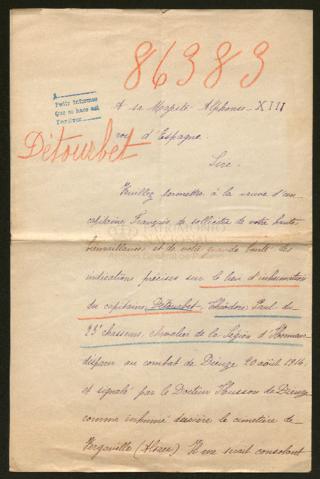 86383
Pedir informes
Que se hace así
Détourbet
A sa Majesté Alphonse XIII
roi d'Espagne.
Sire,
Veuillez permettre, à la veuve d'un
capitaine Français de solliciter de votre haute
bienveillance et de votre grande bonté des
indications précises sur le lieu d'inhumation
du capitaine Détourbet, Théodore Paul du
23e chasseurs, chevalier de la Légion d'Honneur
disparu au combat de Dieuze 20 août 1914
et signalé par le Docteur Husson de Dieuze
comme inhumé derrière le cimetière de
Vergaville (Alsace) Il me serait consolant